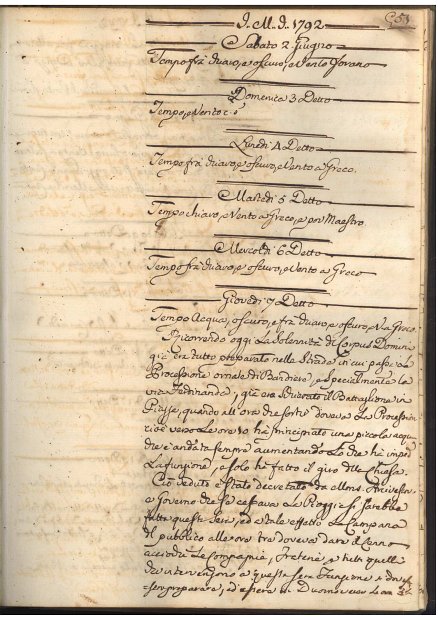 J. M. J. 1792
Sabato 2 Giugno
Tempo frà chiavo, e oscuro, e Vento
Domenica 3 Detto
Tempo, e Vento
Lunedi 4 Detto
Tempo frà chiavo, e oscuro, e Vento a Greco.
Martedi 5 Detto
Tempo chiavo, e Vento a Greco, e poi Maestro.
Mercoldi 6 Detto
Tempo frà chiavo, e oscuro, e Vento a Greco
Giovedi 7 Detto
Tempo Acqua, oscuro, e frà chiavo, e oscuro, V. a Greco.
Ricorrendo oggi La Solennità di Corpus Domini
già era tutto preparato nelle Strade in cui passa La
Processione ornate di Bandiere, e specialmente la
via Ferdinanda, già era il Battaglione in
quando all'ora che doveva La
verso Le ore 10 hà principiato una piccola acqua
che è andata sempre aumentando Lo che hà
La funzione, e solo hà fatto il giro Chiesa.
Ciò veduto è stato decretato da
e Governo che se cessava La Pioggia si sarebbe
fatta questa sera, ed a tale effetto La Campana
del pubblico alle ore tre doveva dare il Cenno
acciochè Le Compagnie, e tutti quelli
che intervengono a questa sera Funzione
preparare, ed essere al Duomo verso Le ore